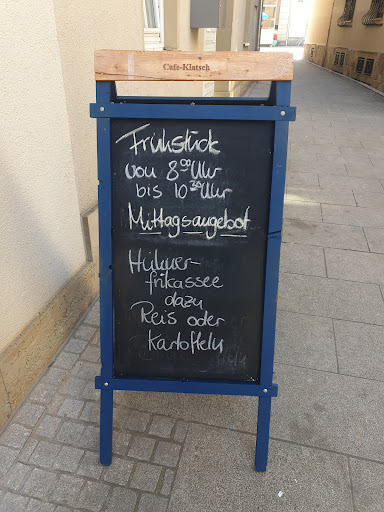 Cafe-Klatsch
Frühstück
von 8⁰⁰ Uhr
bis 10³⁰ Uhr
Mittagsangebot
Hühner-
frikassee
dazu
Reis oder
Kartoffeln